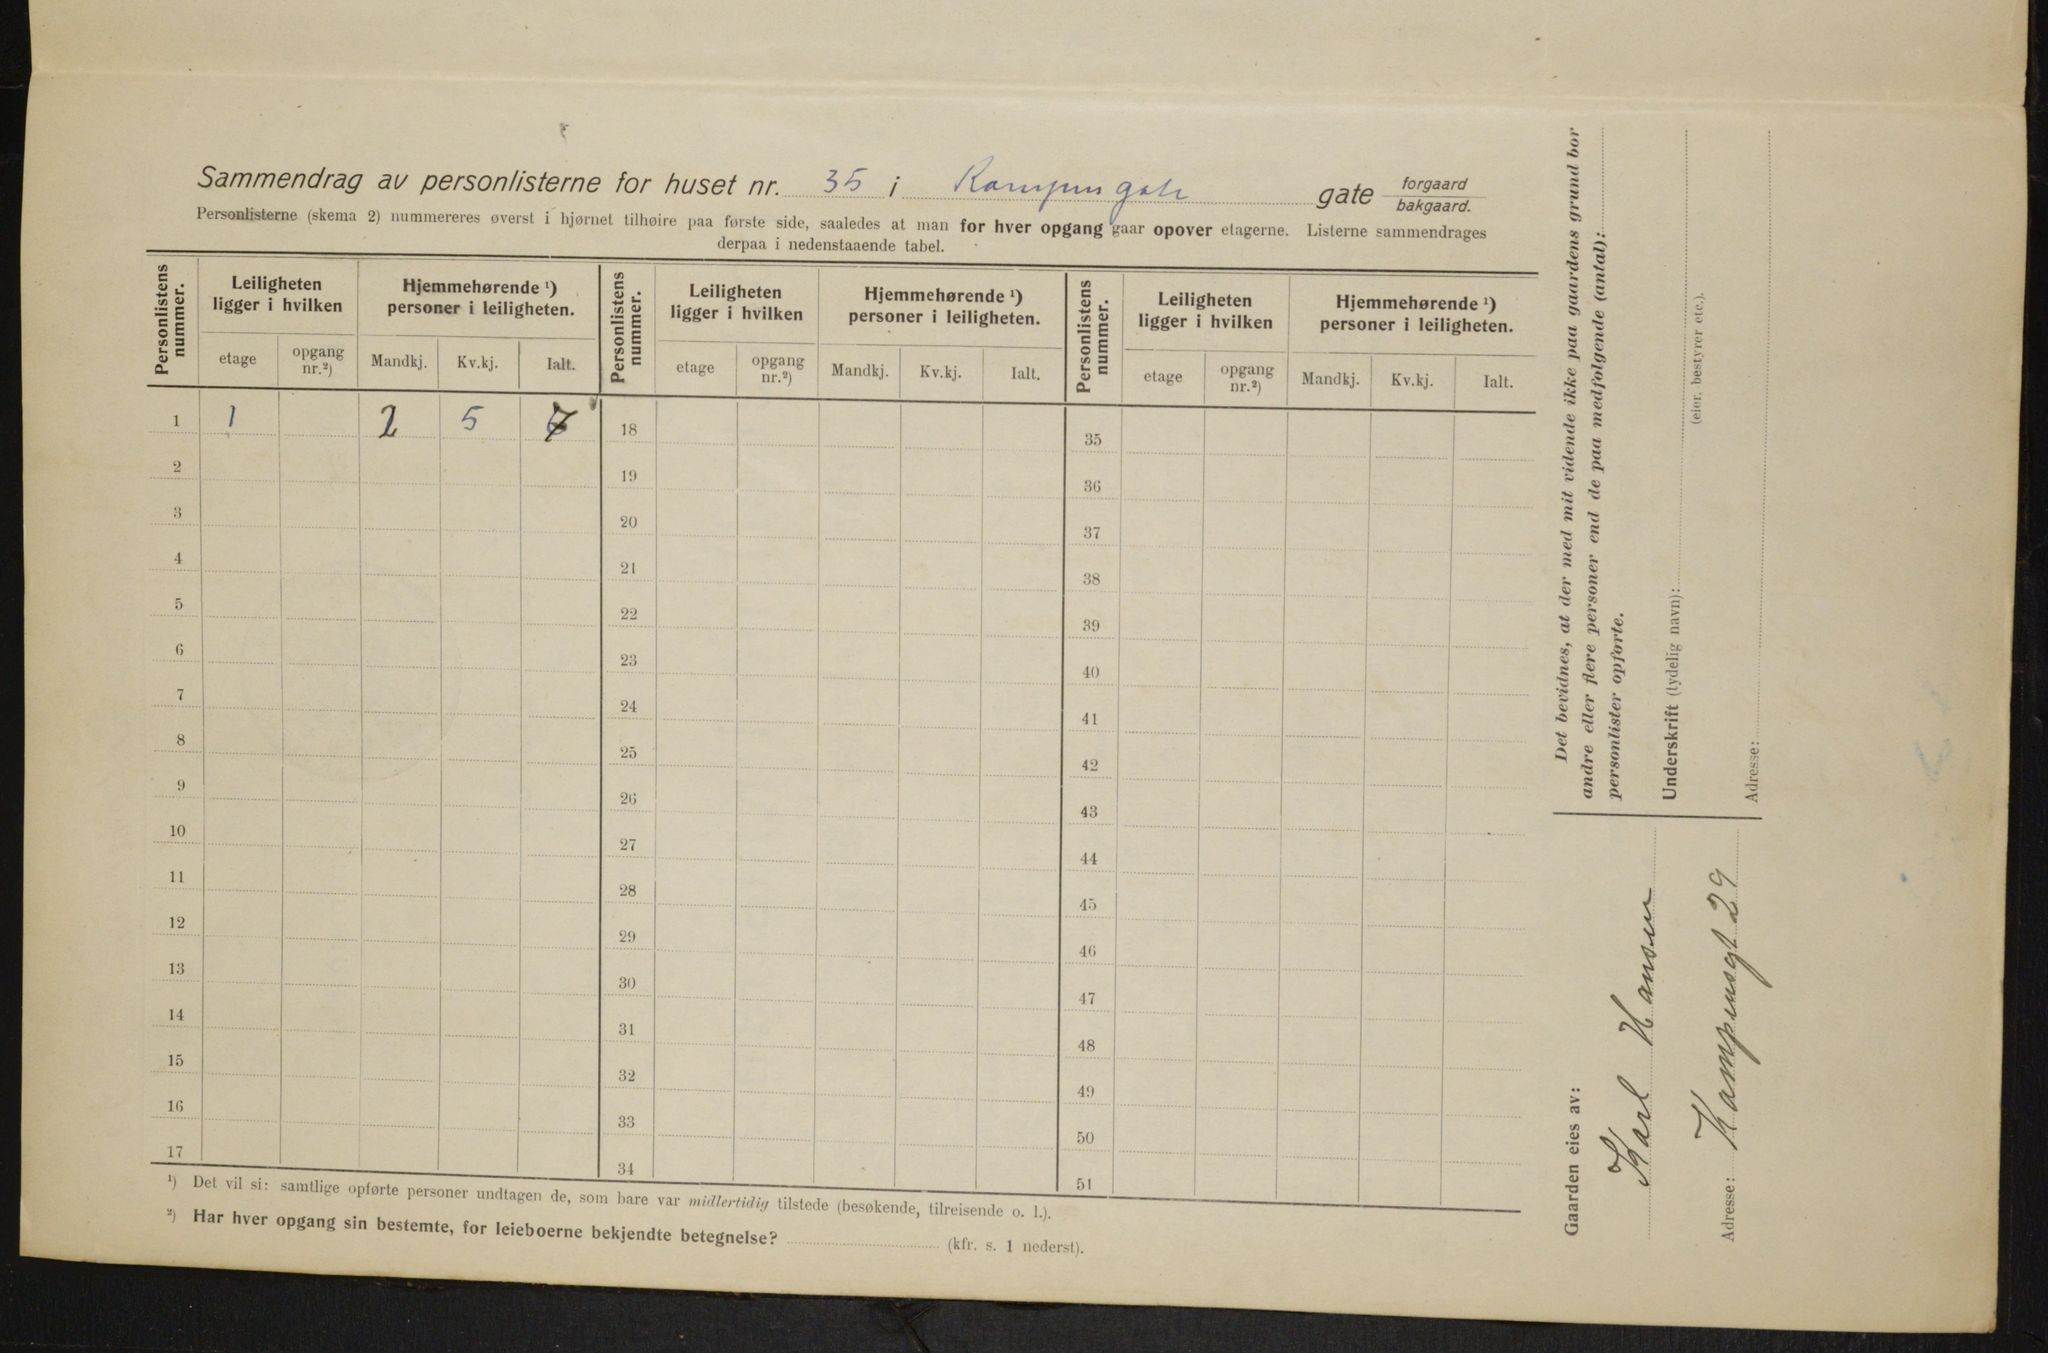 Sammendrag av personlisterne for huset nr. 35 i Kampengate gate forgaard bakgaard.
Personlisterne (skema 2) nummereres øverst i hjørnet tilhøire paa første side, saaledes at man for hver opgang gaar opover etagerne. Listerne sammendrages
derpaa i nedenstaaende tabel.
Personlistens nummer. Leiligheten ligger i hvilken Hjemmehørende ¹) personer i leiligheten. Personlistens nummer. Leiligheten ligger i hvilken Hjemmehørende ¹) personer i leiligheten. Personlistens nummer. Leiligheten ligger i hvilken Hjemmehørende ¹) personer i leiligheten.
etage opgang nr.²) Mandkj. Kv.kj. Ialt. etage opgang nr.²) Mandkj. Kv.kj. Ialt. etage opgang nr.²) Mandkj. Kv.kj. Ialt.
1 1 2 5 7 18 35
2 19 36
3 20 37
4 21 38
5 22 39
6 23 40
7 24 41
8 25 42
9 26 43
10 27 44
11 28 45
12 29 46
13 30 47
14 31 48
15 32 49
16 33 50
17 34 51
¹) Det vil si: samtlige opførte personer undtagen de, som bare var midlertidig tilstede (besøkende, tilreisende o. l.).
²) Har hver opgang sin bestemte, for leieboerne bekjendte betegnelse? (kfr. s. 1 nederst).
Det bevidnes, at der med mit vidende ikke paa gaardens grund bor
andre eller flere personer end de paa medfølgende (antal):
personlister opførte.
Underskrift (tydelig navn):
(eier, bestyrer etc.).
Adresse:
Gaarden eies av:
Karl Hansen
Adresse: Kampensgt 29